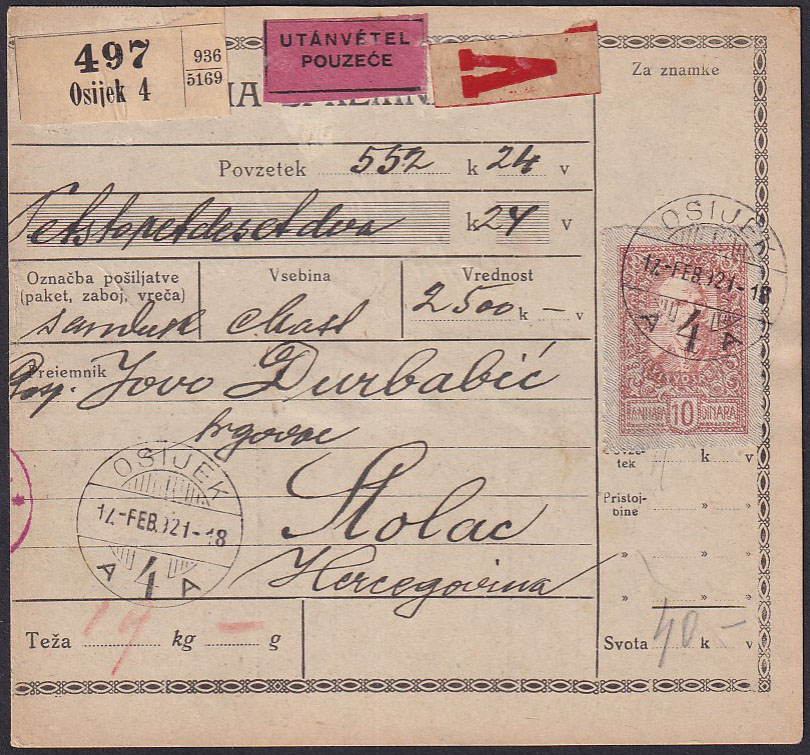 497
Osijek 4
936
5169
UTÁNVÉTEL
POUZEĆE
V
Za znamke
Povzetek 552 k 24 v
k 24 v
Označba pošiljatve
(paket, zaboj, vreča)
Vsebina
Vrednost
sanduk
2500 k – v
Prejemnik
Jovo Durbabić
trgovac
Stolac
Hercegovina
OSIJEK
17.-FEB.921-18
A 4 A
OSIJEK
17.-FEB.921-18
A 4 A
10
k v
tek
Pristoj-
bine
" " "
" " "
" " "
Teža 19 kg – g
Svota 40 k – v